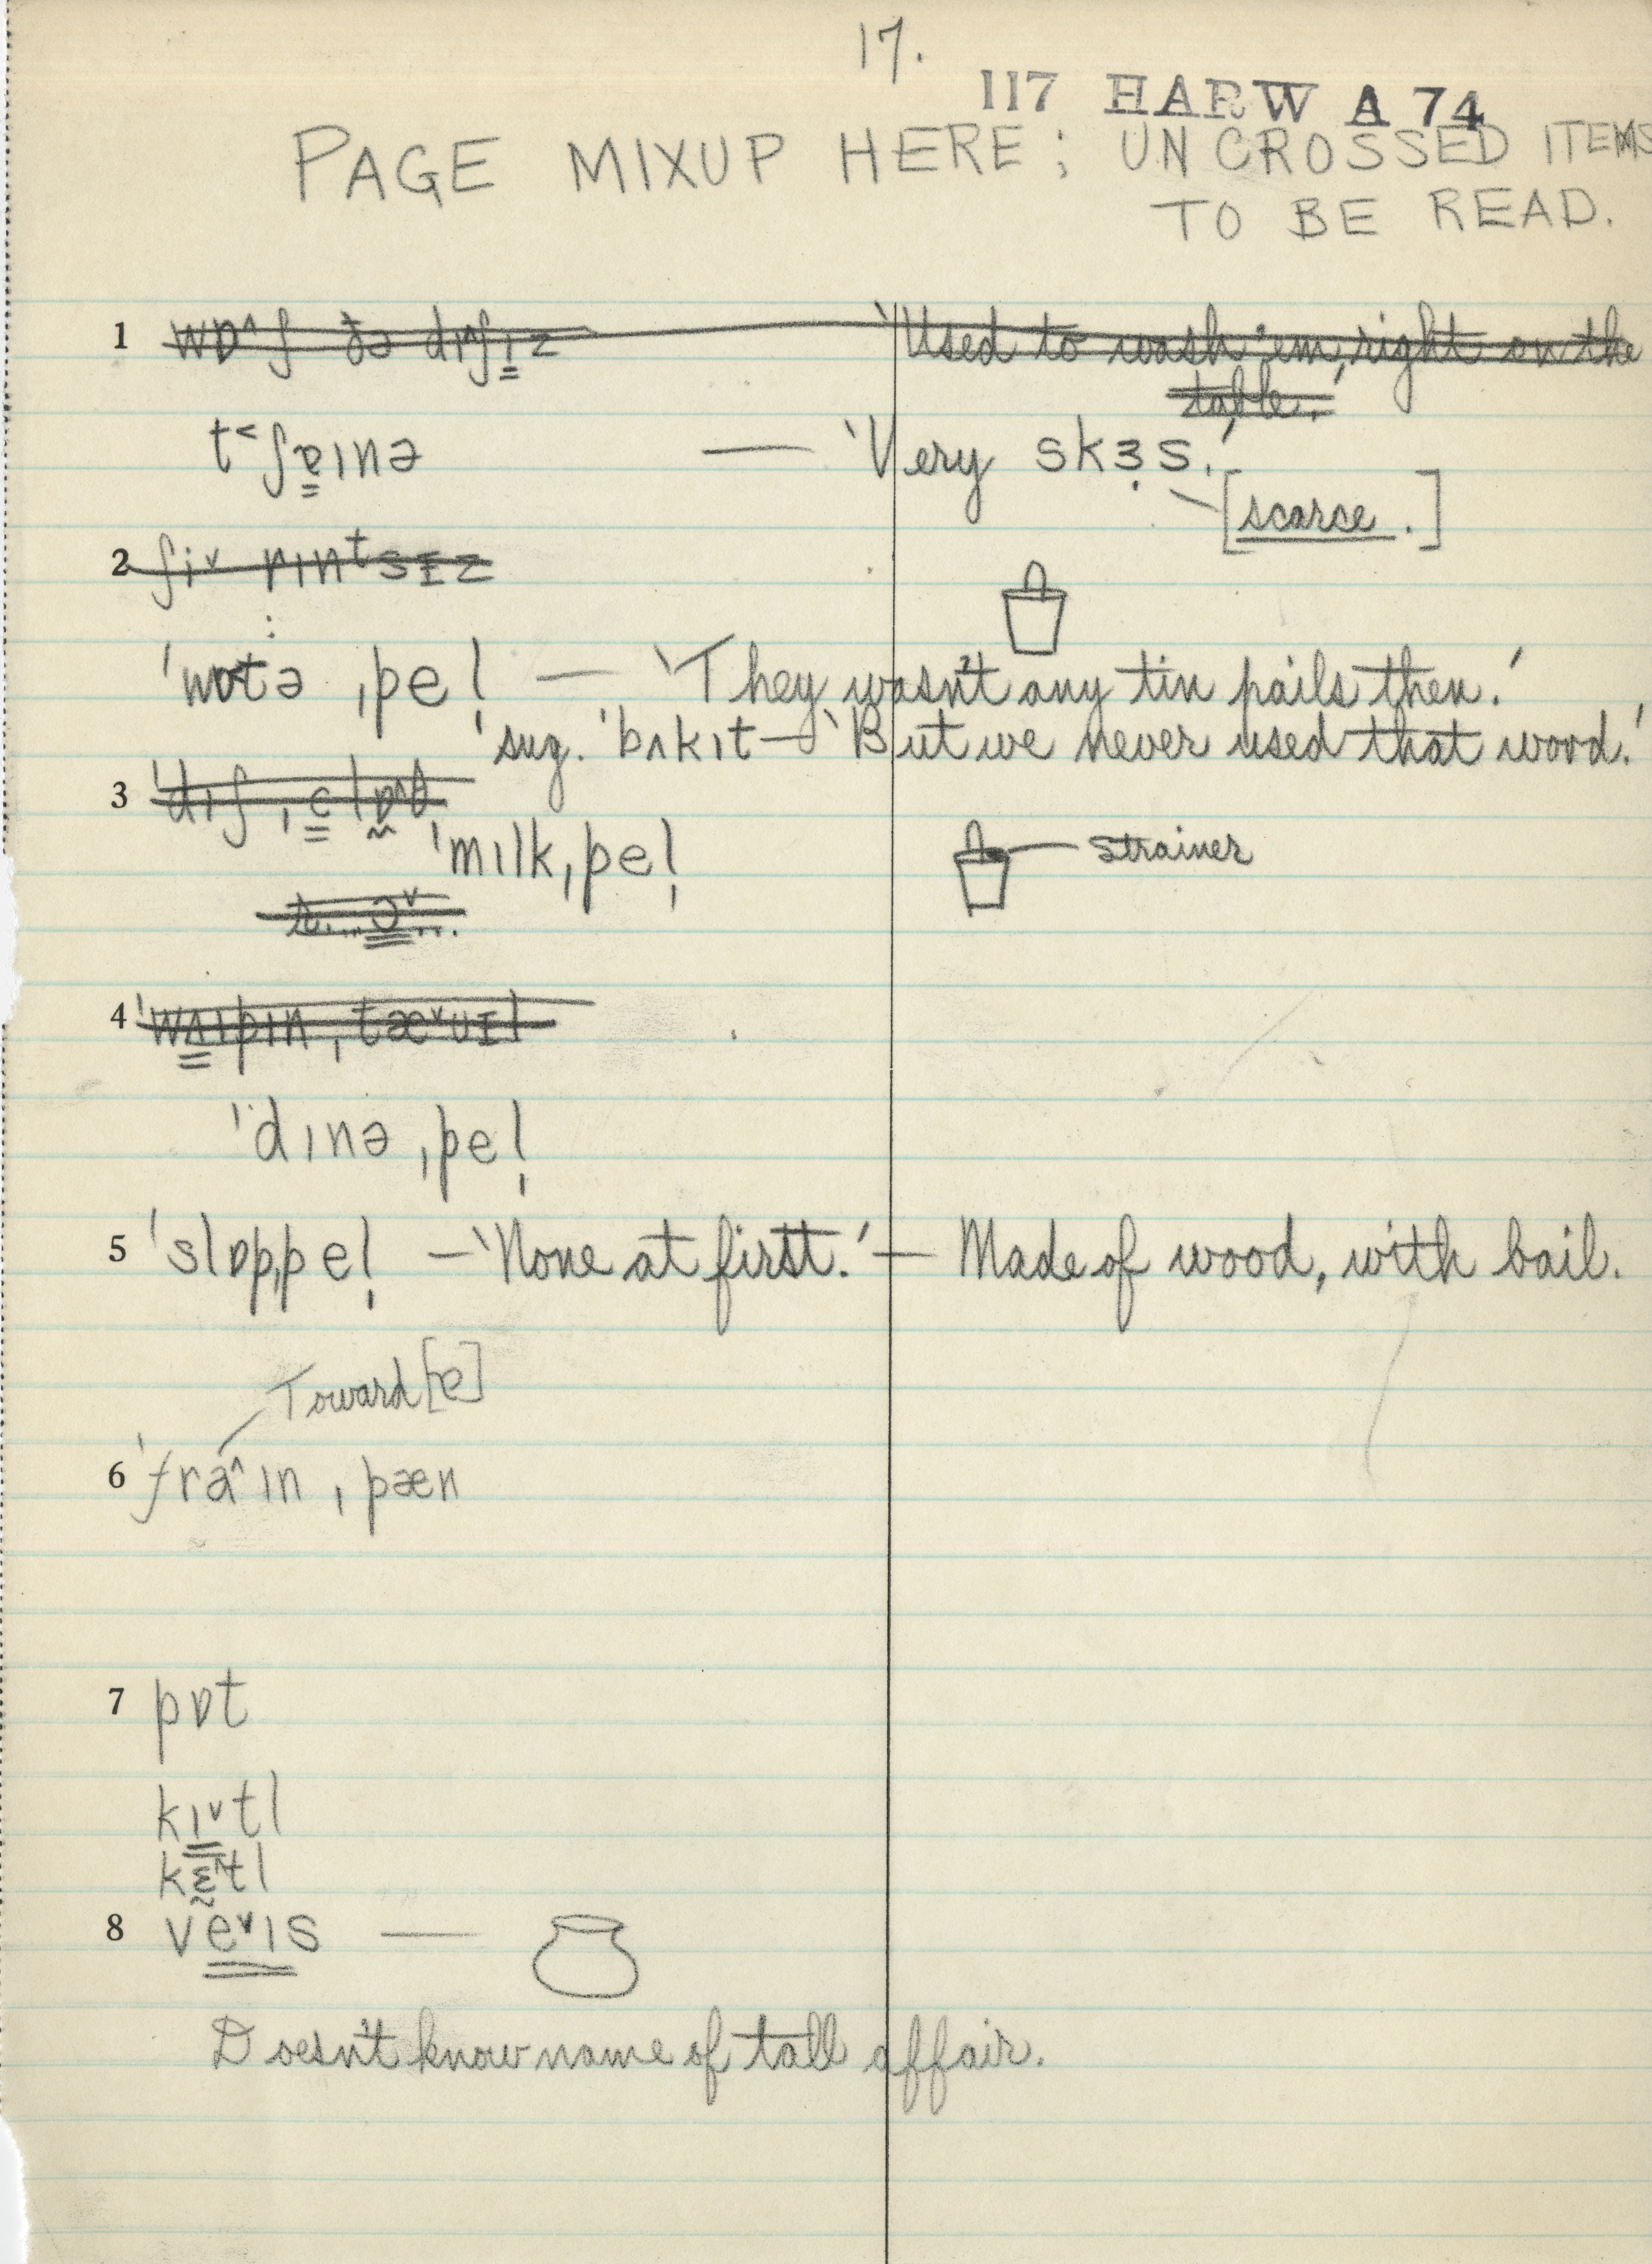 17.
117 HARW A 74
PAGE MIXUP HERE; UNCROSSED ITEMS
TO BE READ.
1 wɒ^ʃ ðə dɪ^ʃɪz 'Used to wash 'em, right on the
table.'
t˂ʃɐɪnə — 'Very skɜs.'
[scarce.]
2 rɪntsɪz
'wɒtə ˌpel̩ — 'They wasn't any tin pails then.'
sug. 'bʌkɪt — 'But we never used that word.'
3 'dɪʃ
'mɪlkˌpel̩
strainer
4 'wʌɪpɪn ˌtæ˅ʊɪl
'dɪnə ˌpel̩
5 'slɒpˌpel̩ — 'None at first.' — Made of wood, with bail.
Toward [ɐ]
6 'fra^ɪn ˌpæn
7 pɒt
kɪ˅tl
kɛ^tl
8 ve˅ɪs —
Doesn't know name of tall affair.